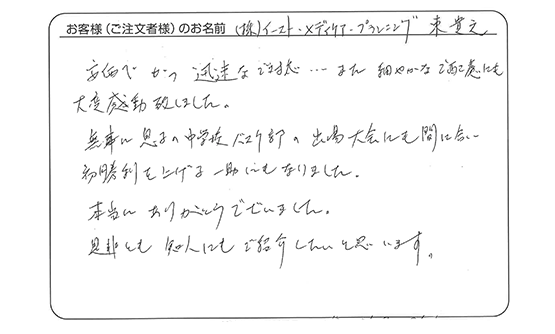 お客様（ご注文者様）のお名前 (株)イースト・メディア・プランニング 東 貴之
安価で かつ 迅速な ご対応… また 細やかな ご配慮にも
大変感動致しました。
無事に 息子の中学校 バスケ部の 出場大会にも間に合い
初勝利を上げる 一助にもなりました。
本当に ありがとうございました。
是非とも 知人にも ご紹介したいと思います。